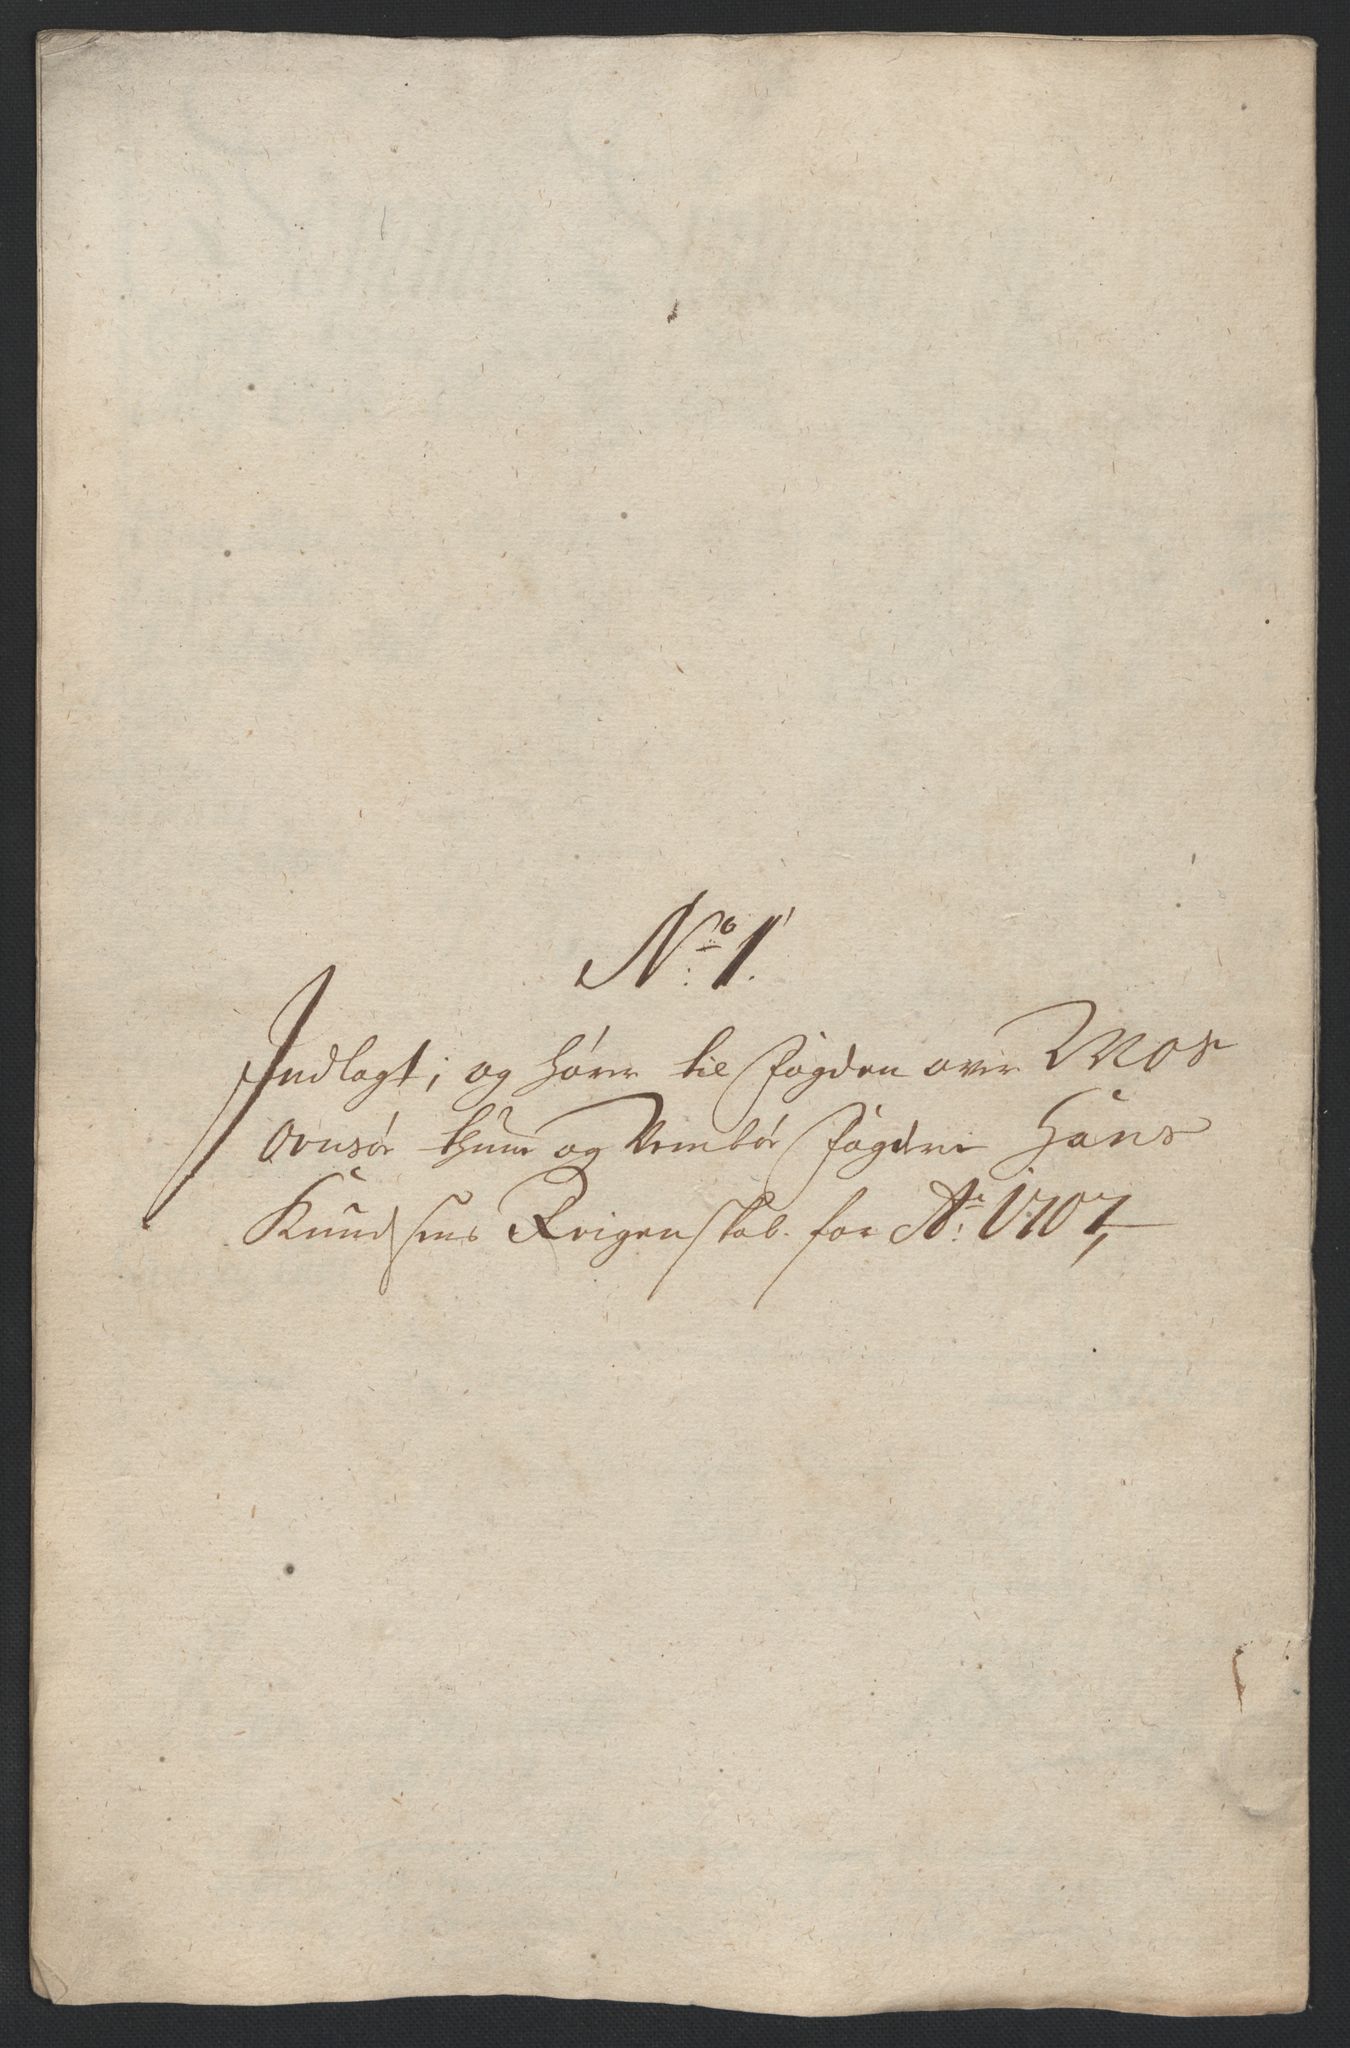 No: 1.
Indlagt, og hører til fogden over Mos
Onsøe Thune og Vembøe fogderi Hans
Knudsens Reigenskab for Ao: 1707,